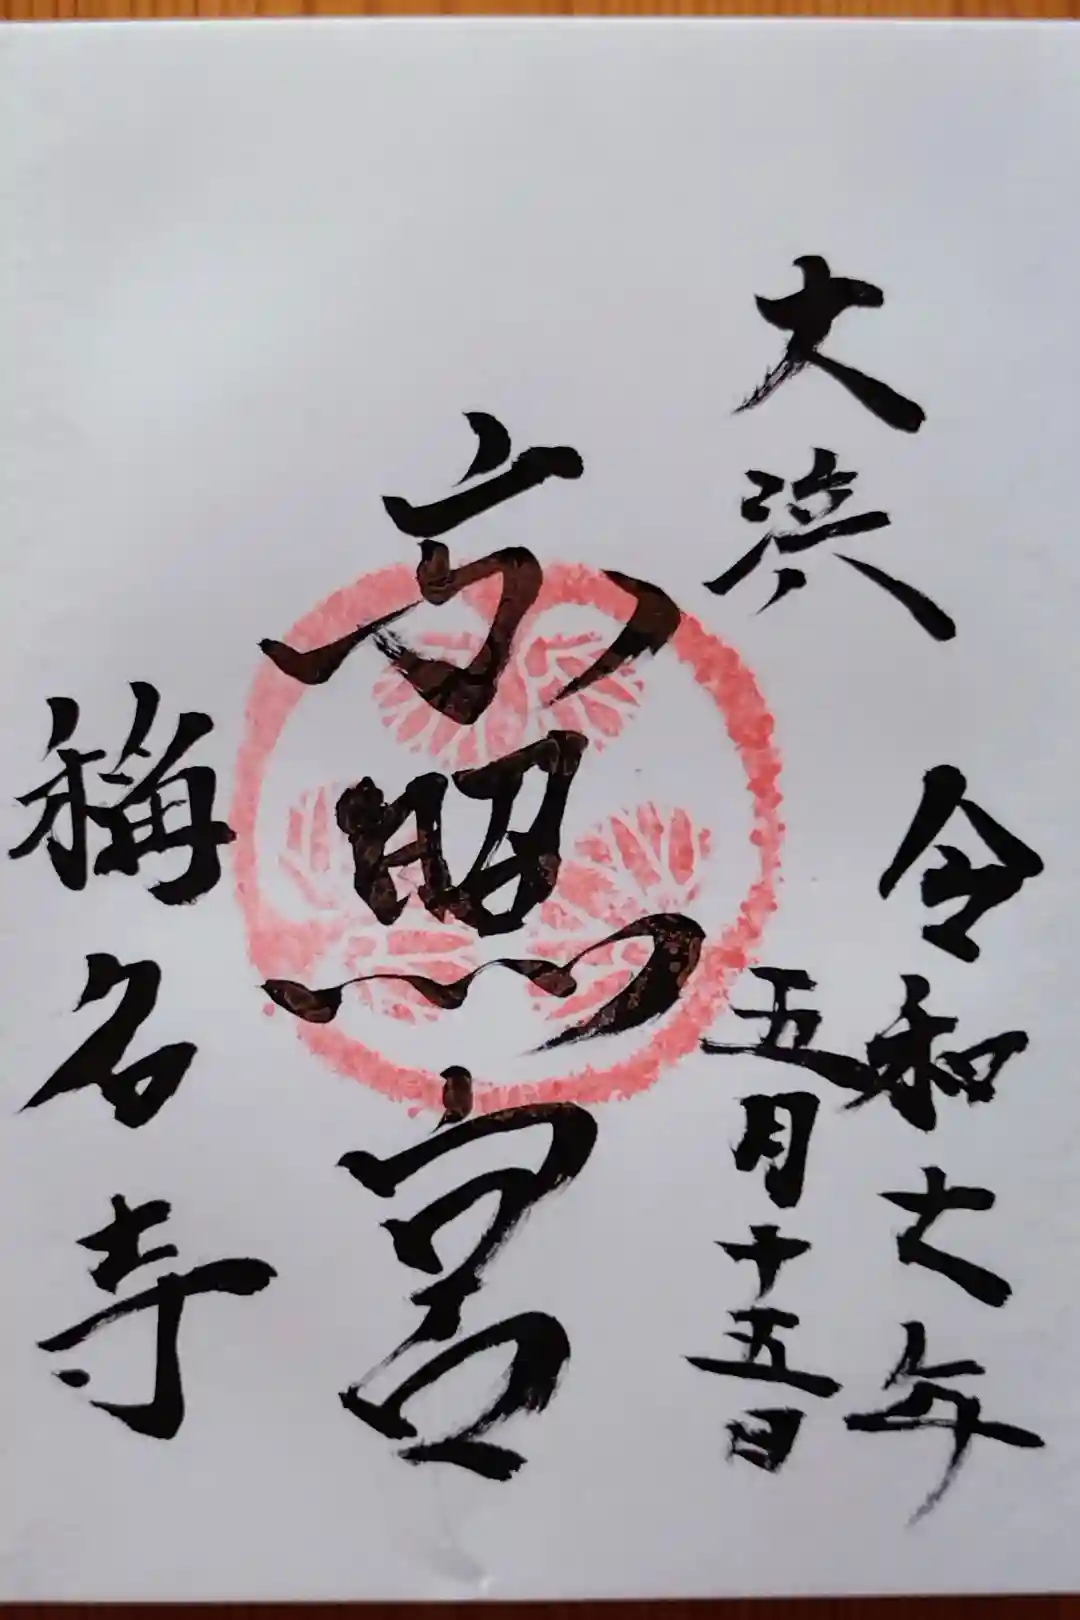 大浜
令和七年
五月十五日
東照宮
稱名寺